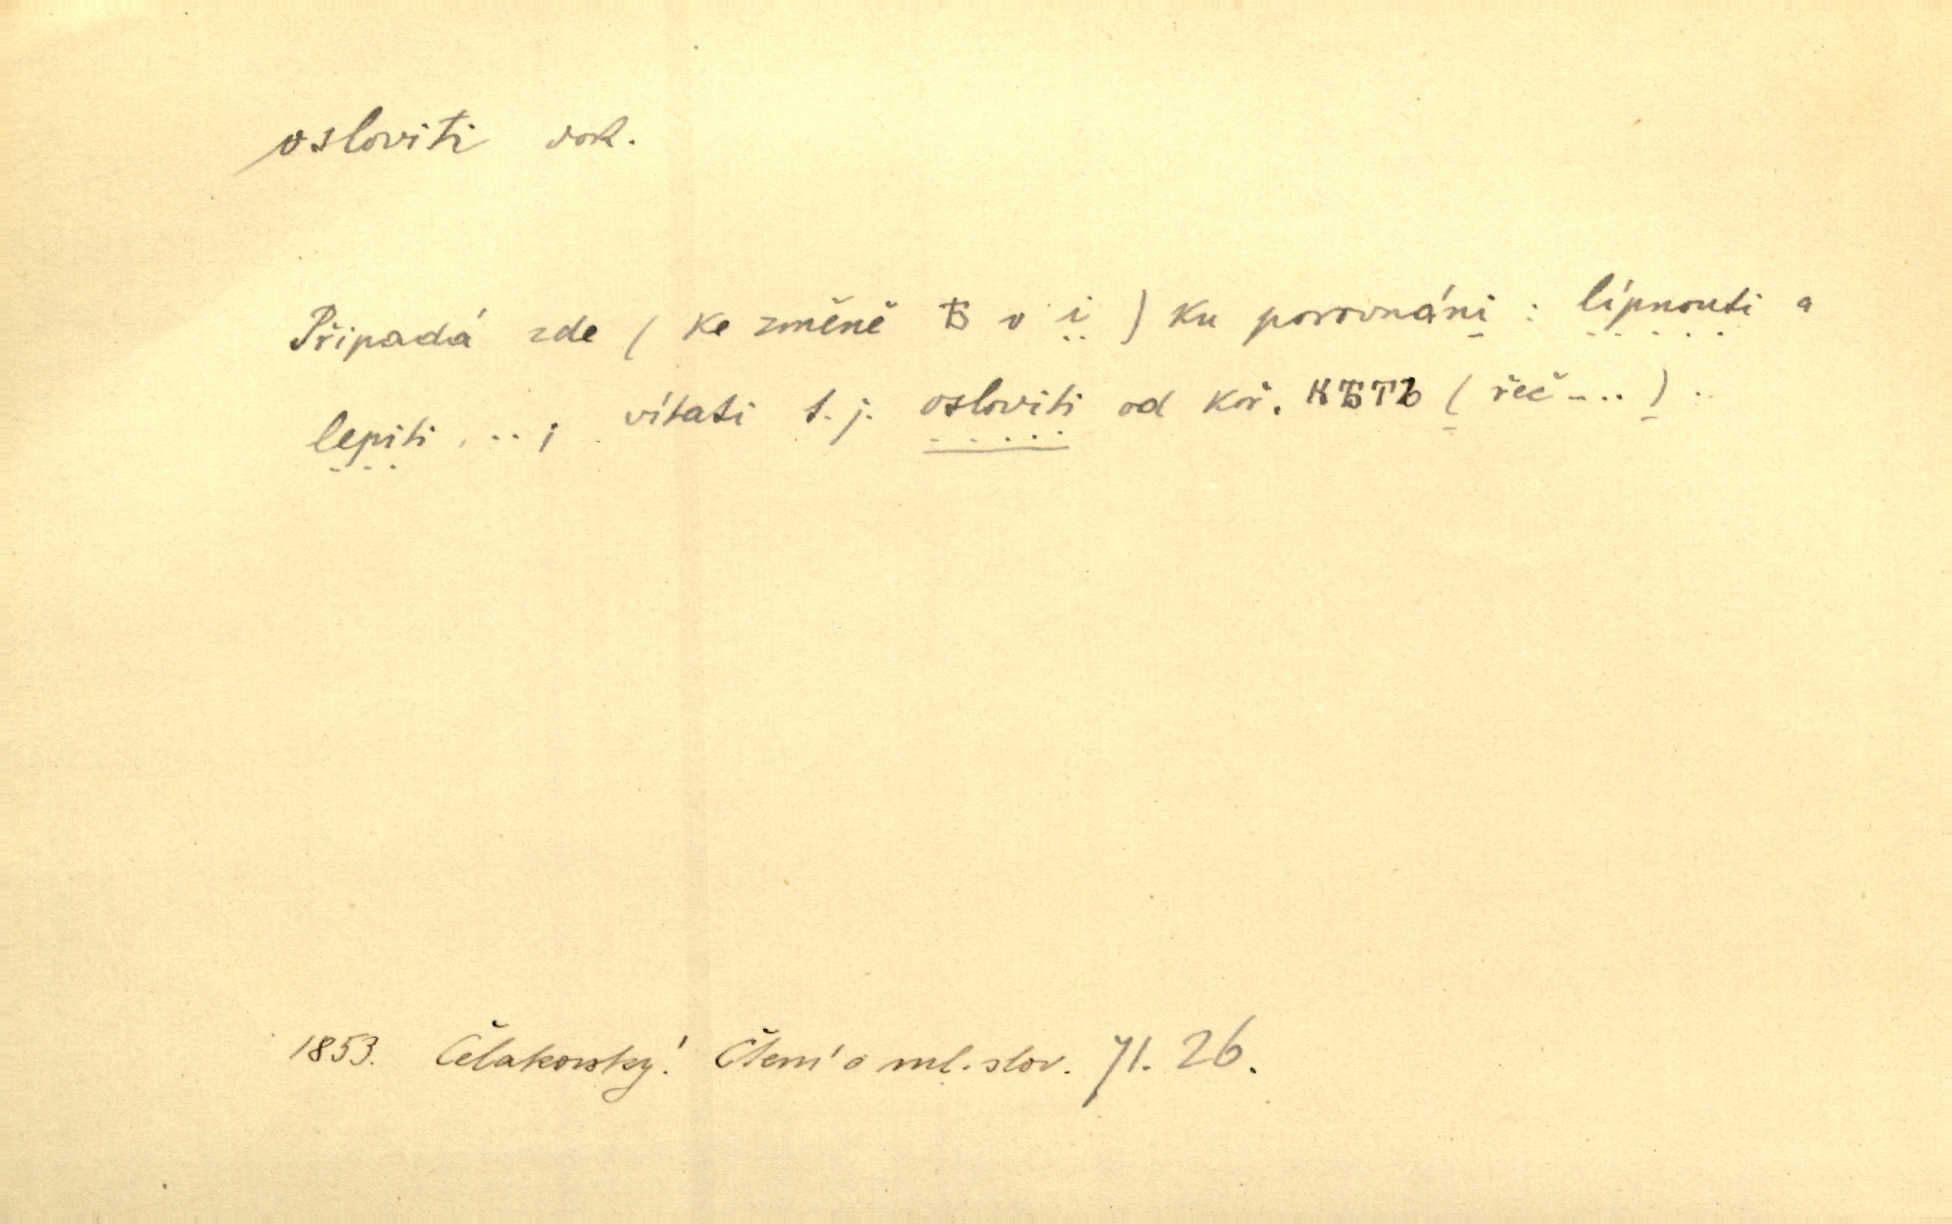 osloviti dok.
Připadá zde ( ke změně ѣ v i ) ku porovnáni : lípnouti a
lepiti ... ; vítati t. j. osloviti od koř. вѣтъ ( řeč ... ) ..
1853. Čelakovský: Čtení o ml. slov. 71. 26.